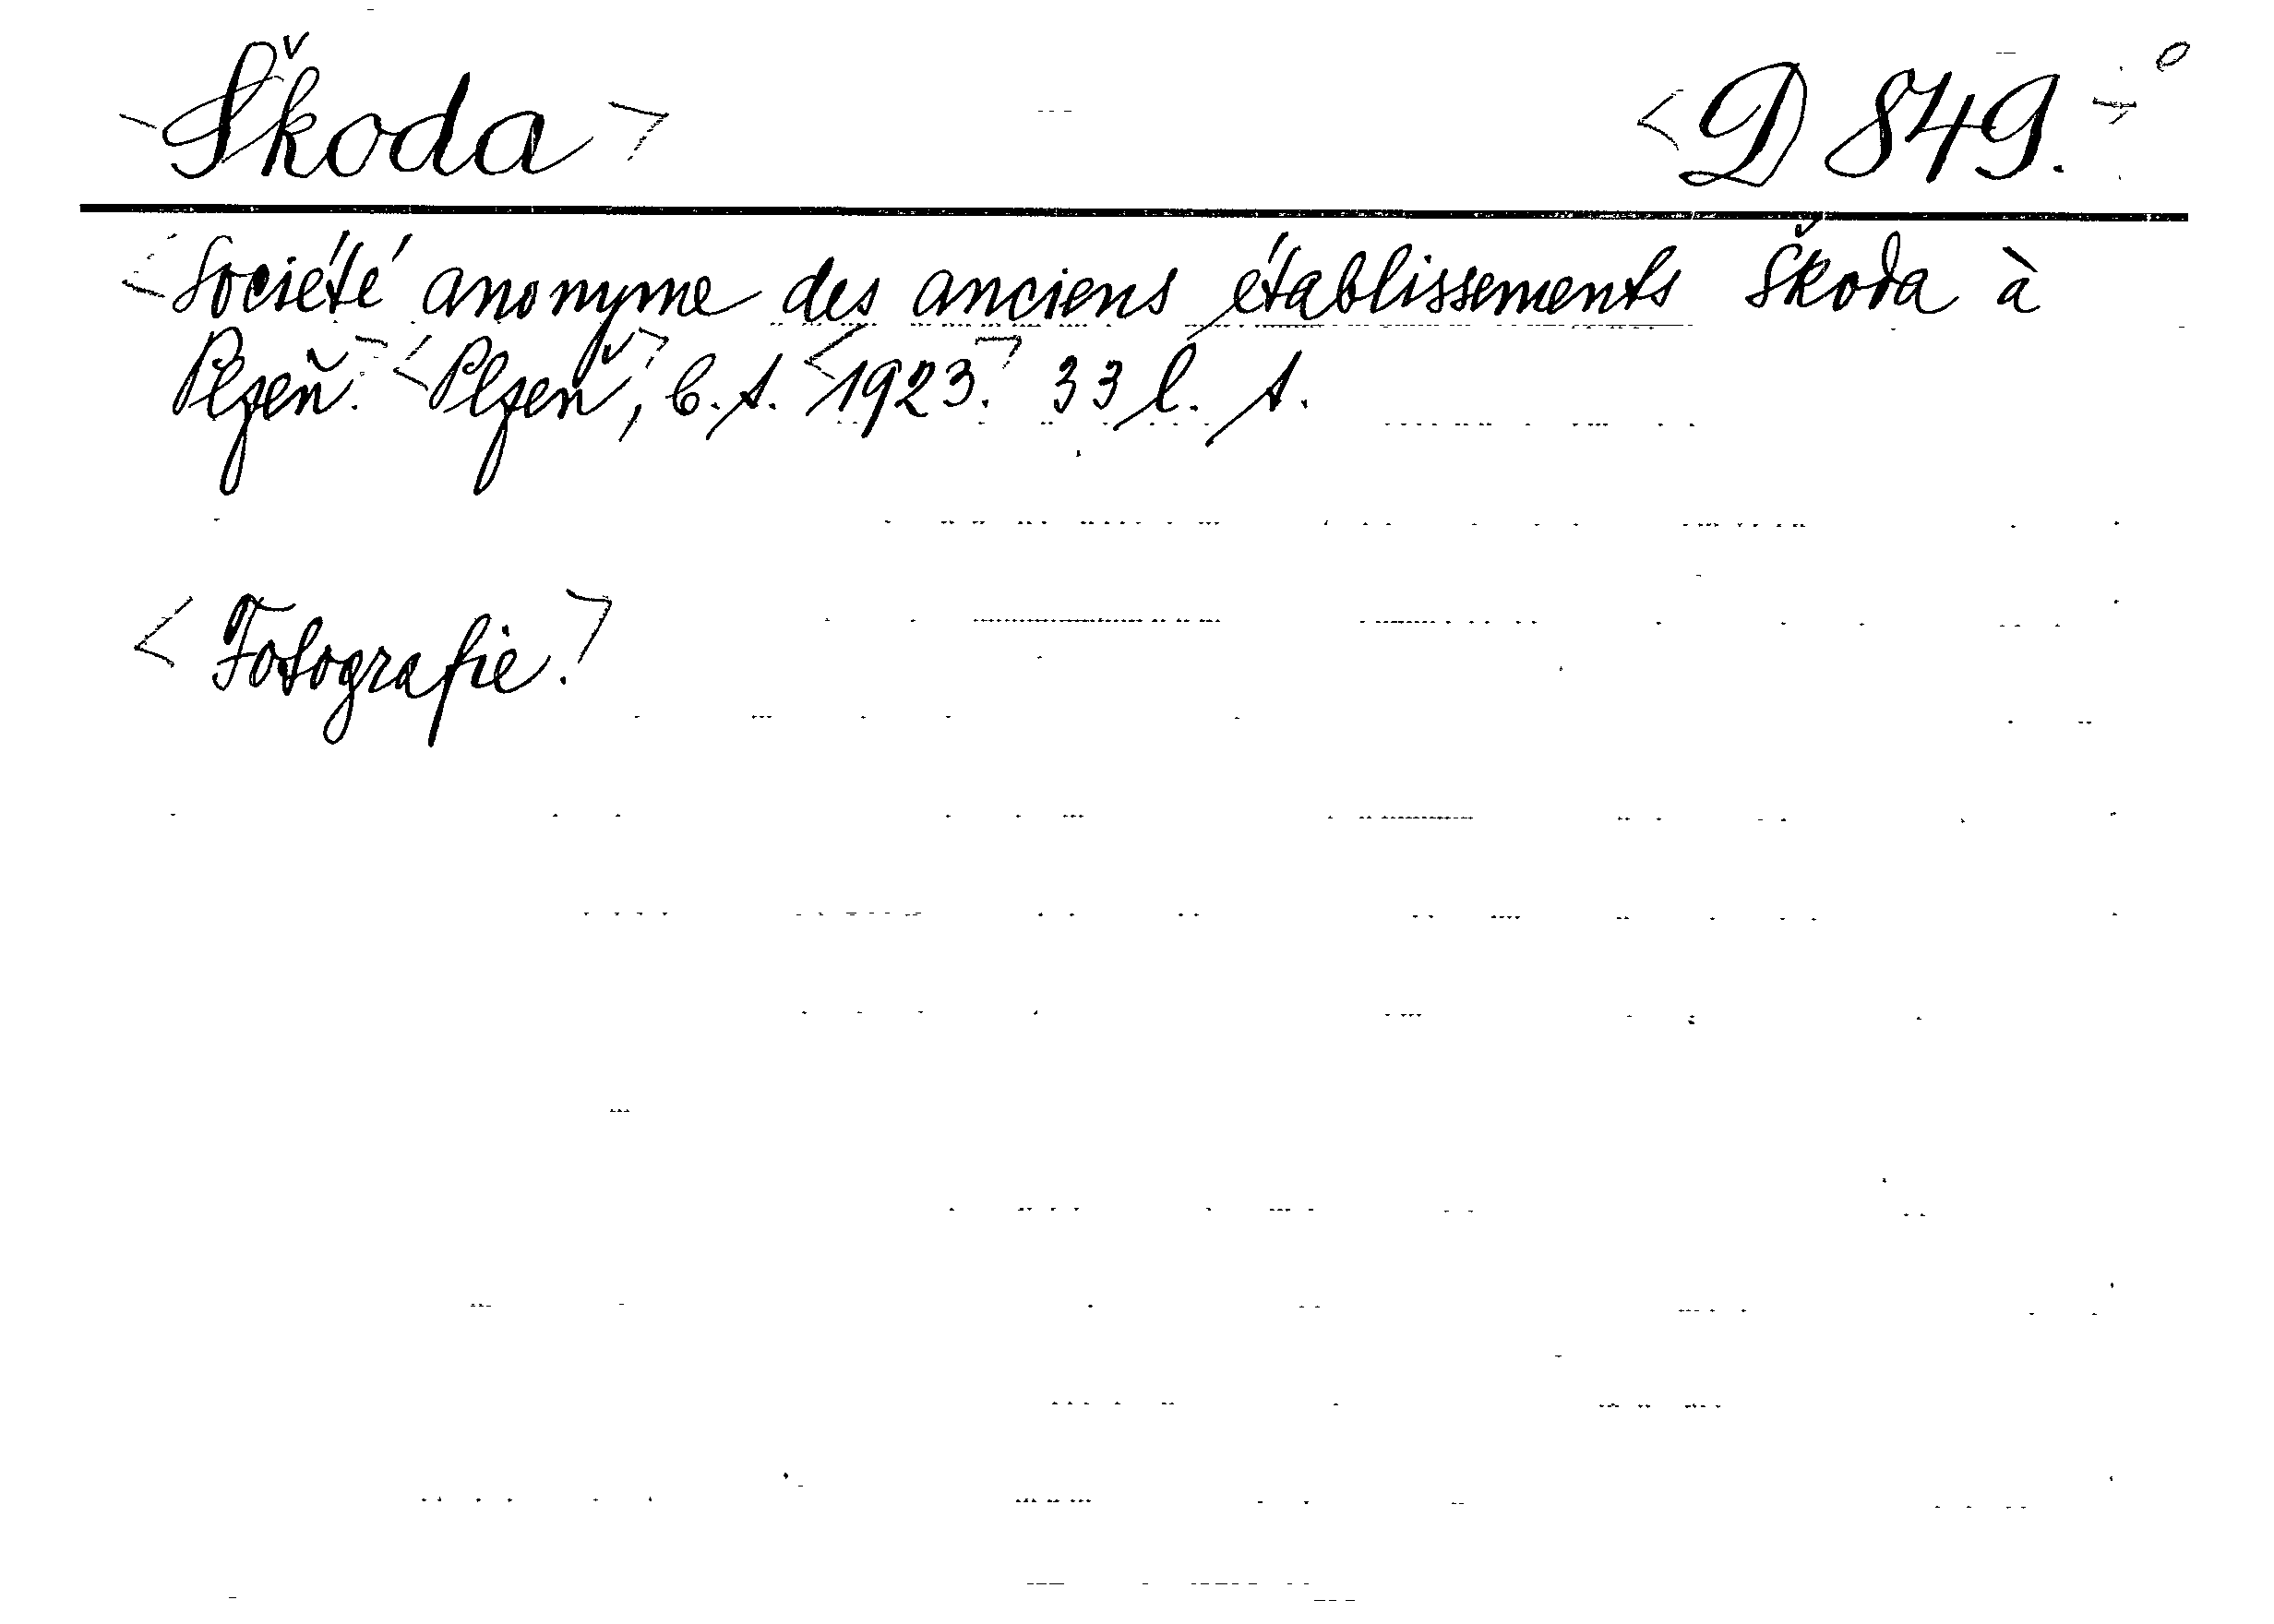 <Škoda> <D 849.> o
<Société anonyme des anciens établissements Škoda à
Plzeň.> <Plzeň,> b. t. <1923.> 33 l. t.
<Fotografie.>